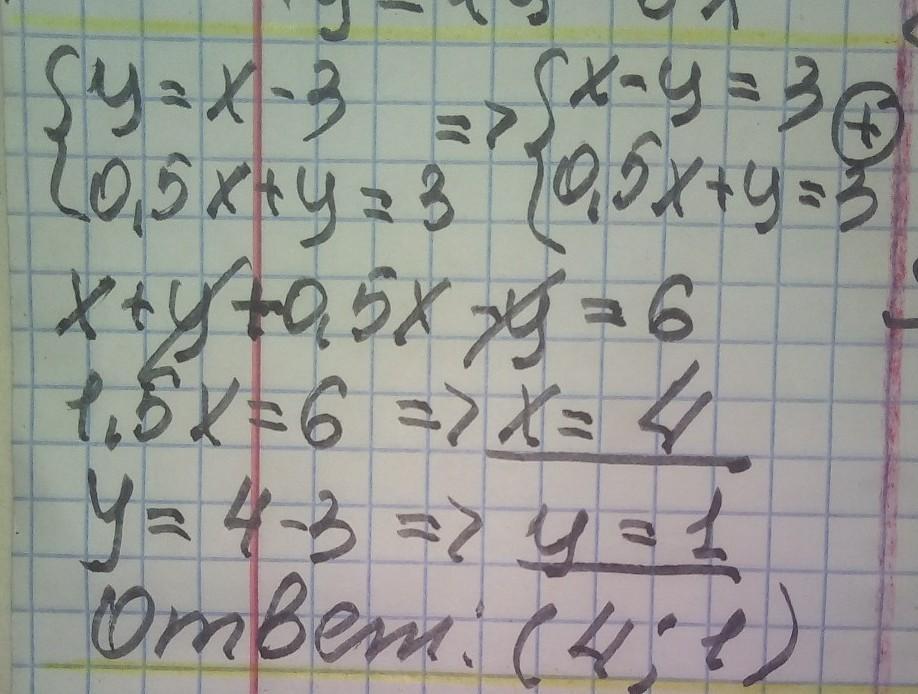 {y = x - 3 => {x - y = 3 (+)
{0,5x + y = 3 {0,5x + y = 3
x + y + 0,5x - y = 6
1,5x = 6 => x = 4
y = 4 - 3 => y = 1
Ответ: (4; 1)